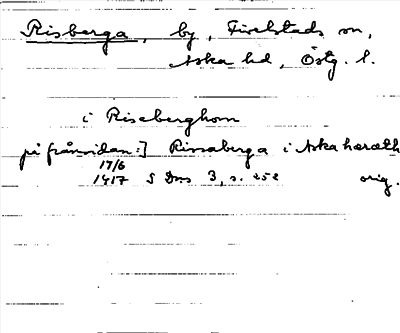 Risberga, by, Fivelstads sn,
Aska hd, Östg. l.
i Riseberghom
på frånsidan:] Rirsaberga i Aska hæræth
17/6
1417 S Dns 3, s. 252 orig.